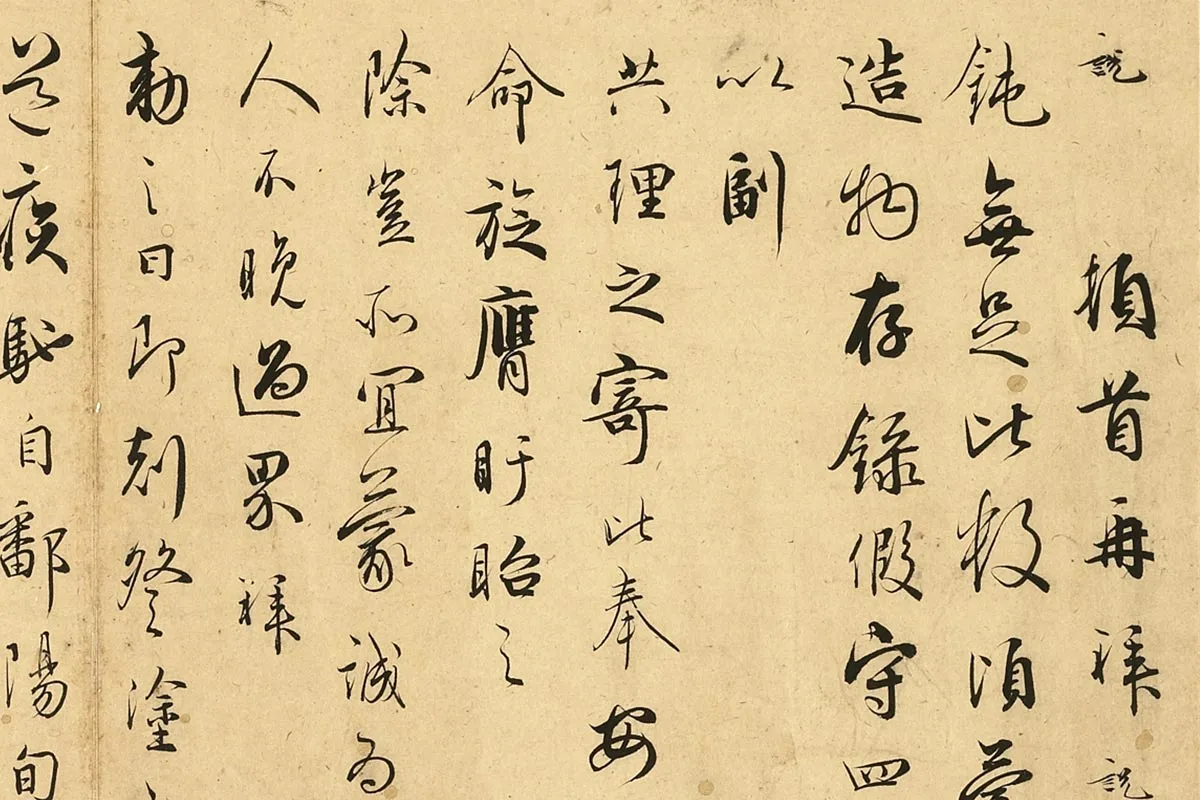 説頓首再拜説
鈍無足比數頃蒙
造物存錄假守四
以副
共理之寄此奉安
命旋膺盱眙之
除豈所宜蒙誠為
人不晚過界拜
勅之日即刻登塗
道疾馳自鄱陽旬